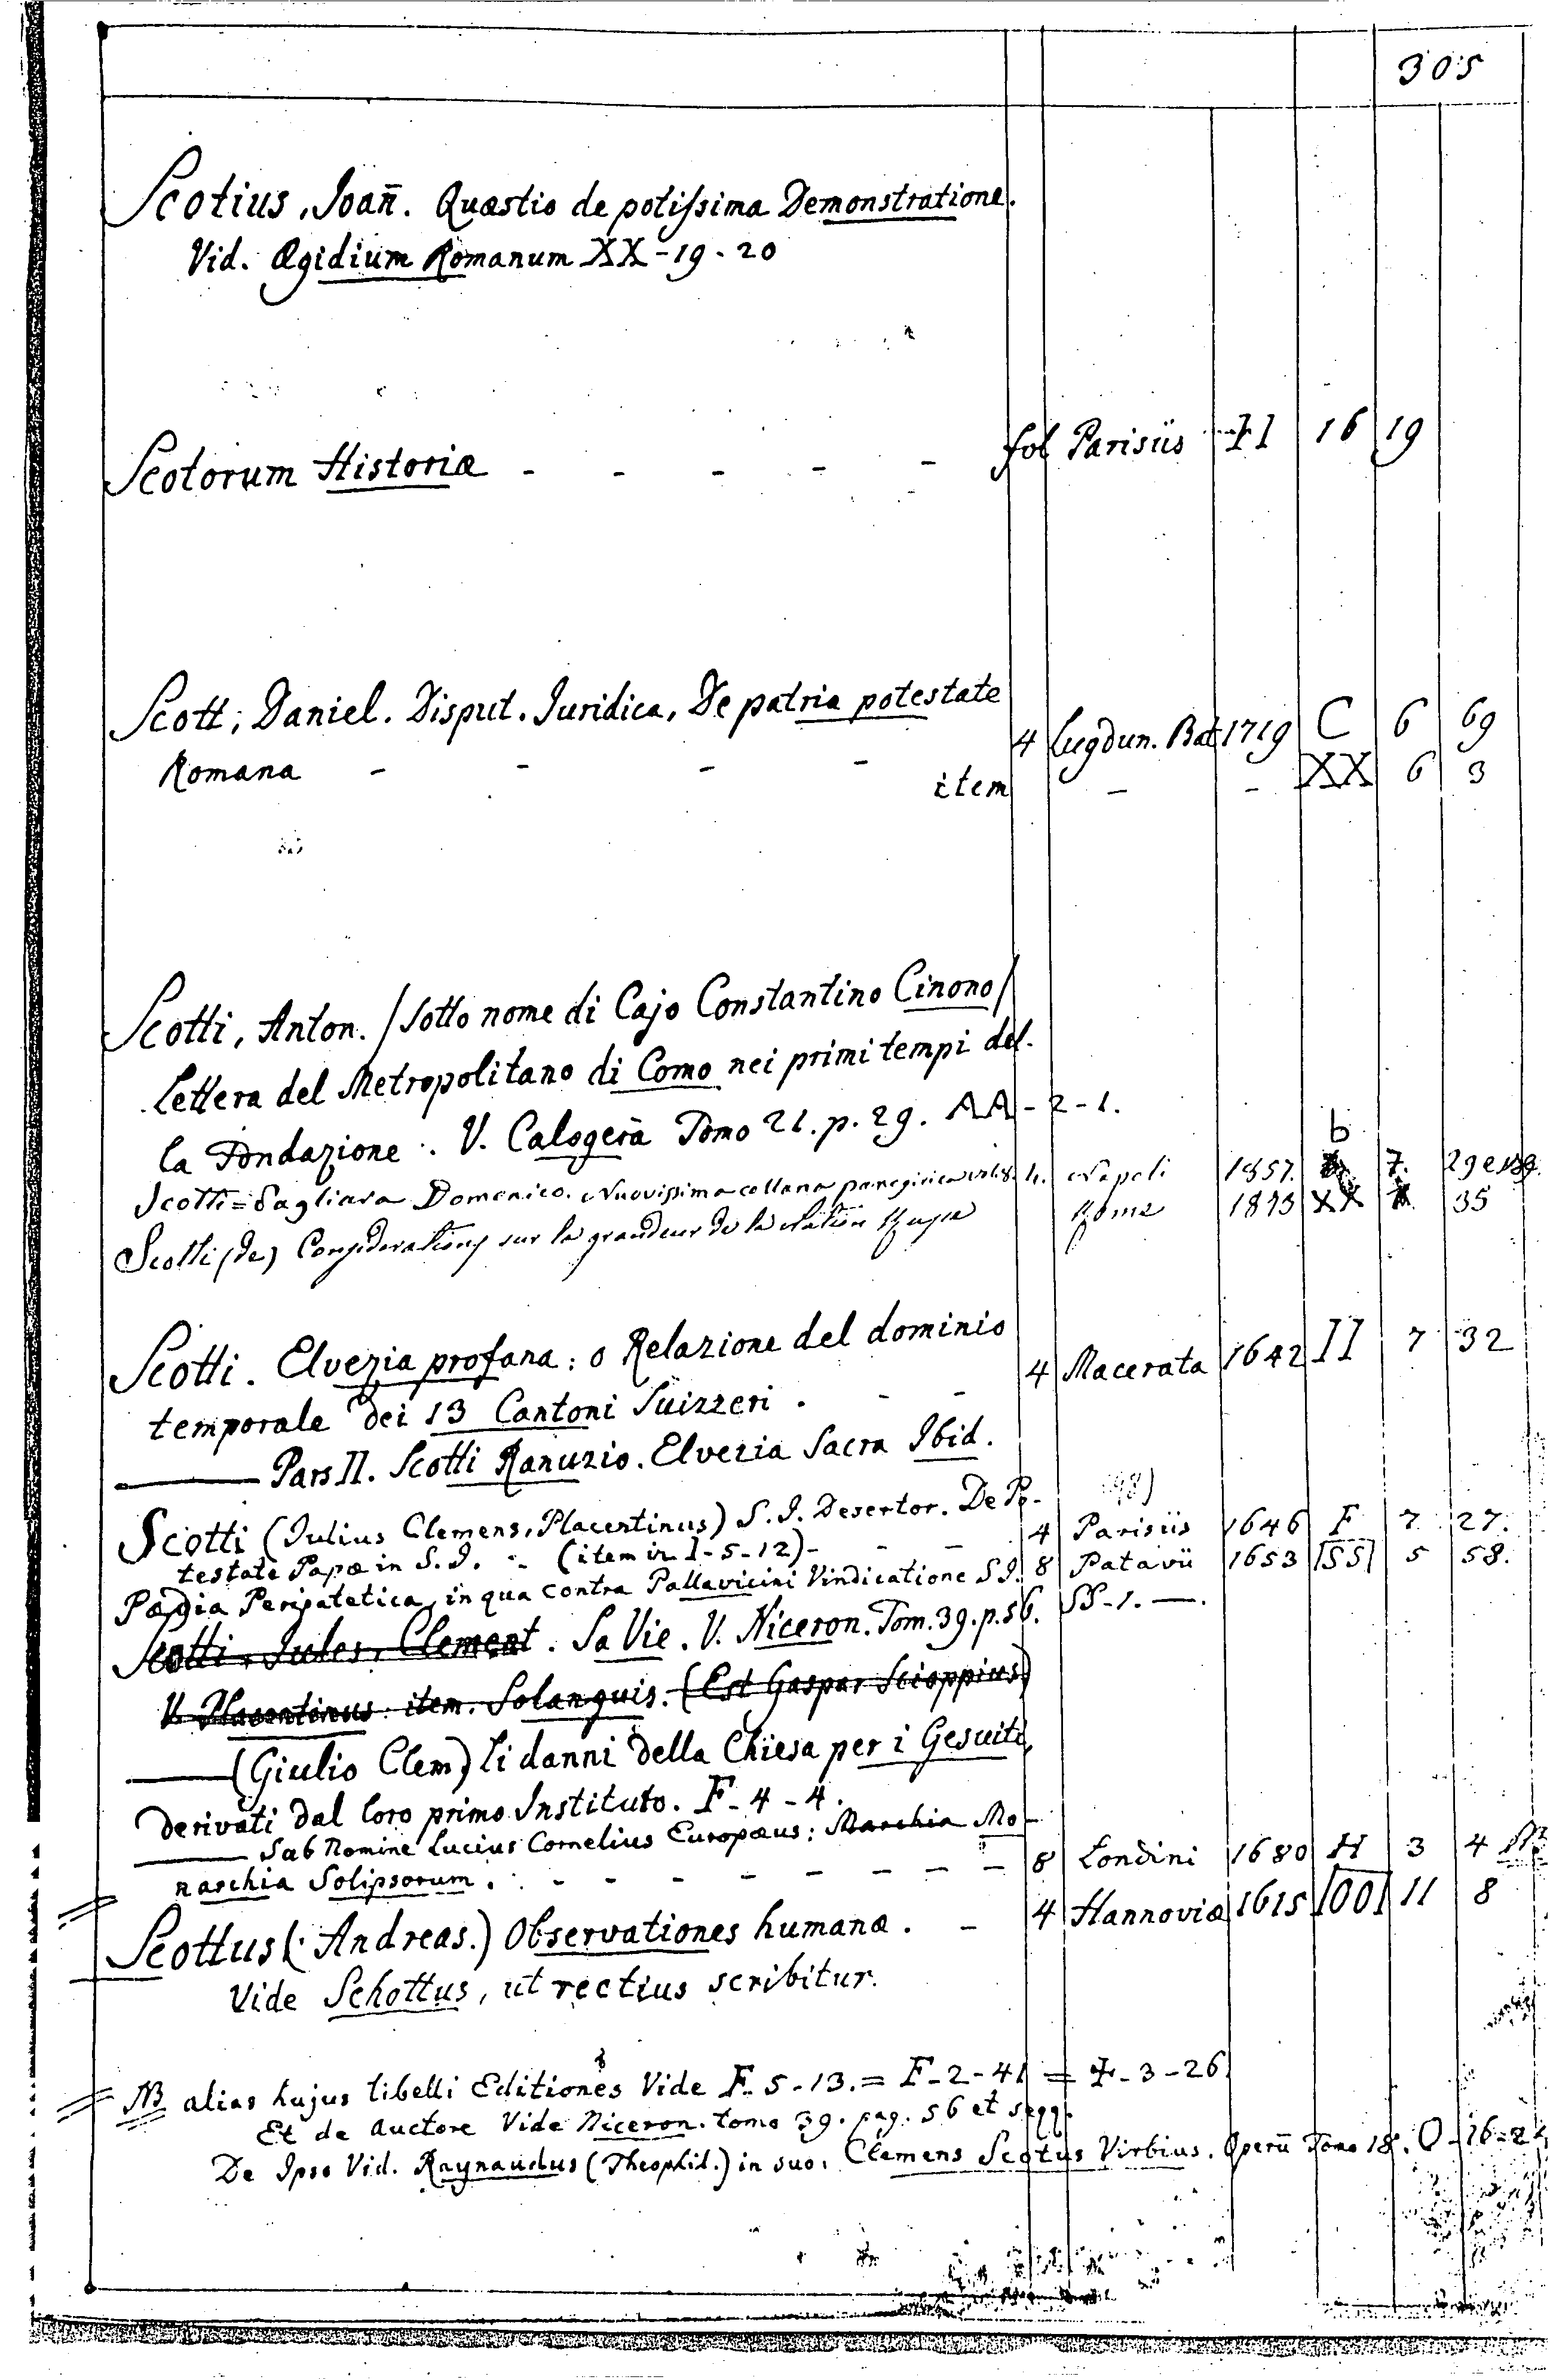 305
Scotius, Joañ. Quæstio de potissima Demonstratione.
Vid. Ægidium Romanum XX - 19 - 20
Scotorum Historiæ - - - - - fol Parisiis II 16 19
Scott, Daniel. Disput. Juridica, De patria potestate
Romana - - - - 4 Lugdun. Bat 1719 C 6 69
item - - XX 6 3
Scotti, Anton. /sotto nome di Cajo Constantino Cinono/
Lettera del Metropolitano di Como nei primi tempi del-
la Fondazione. V. Calogerà Tomo 21. p. 29. AA - 2 - 1.
Scotti = Pagliara Domenico. Nuovissima collana panegirica 4. Napoli 1857. b 7. 29
Scotti (de) Considerations sur la grandeur de la Nation Roma XX 35
Scotti. Elvezia profana: o Relazione del dominio
temporale dei 13 Cantoni Suizzeri. - - 4 Macerata 1642 II 7 32
Pars II. Scotti Ranuzio. Elvezia Sacra Ibid.
Scotti (Julius Clemens, Placentinus) S. J. Desertor. De Po-
testate Papæ in S. J. - (item in I - 5 - 12) - - - 4 Parisiis 1646 F 7 27.
Pædia Peripatetica, in qua contra Pallavicini Vindicatione S J. 8 Patavii 1653 SS 5 58.
Scotti, Jules, Clement. Sa Vie. V. Niceron. Tom. 39. p. 56. SS - 1. —.
V. Placentinus: item. Solanguis. (Est Gaspar Scioppius)
—— (Giulio Clem) li danni della Chiesa per i Gesuiti,
derivati dal loro primo Instituto. F - 4 - 4.
—— Sub Nomine Lucius Cornelius Europæus: Marchia Mo-
narchia Solipsorum. - - - - - - 8 Londini 1680 H 3 4 NB
Scottus (Andreas.) Observationes humanæ. - 4 Hannoviæ 1615 OO 11 8
Vide Schottus, ut rectius scribitur.
NB alias hujus libelli Editiones Vide F. 5 - 13. = F - 2 - 41 = F - 3 - 26
Et de auctore Vide Niceron. tomo 39. pag. 56 et seqq.
De Ipso Vid. Raynaudus (Theophil.) in suo: Clemens Scotus Virbius. Operũ Tomo 18. O - 16 - 2